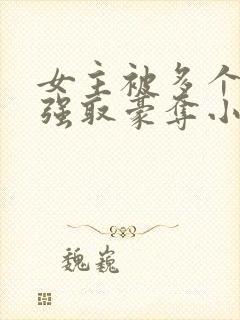 女主被多个
强取豪夺小
魏巍